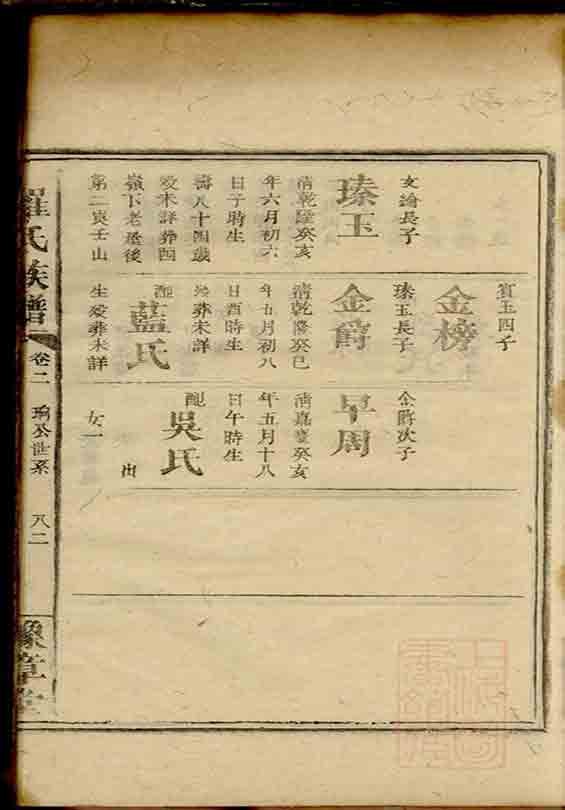 文淪長子
瑧玉
清乾隆癸亥
年六月初六
日子時生
壽八十四歲
歿未詳葬西
嶺下老屋後
第二寅壬山
寶玉四子
金榜
瑧玉長子
金爵
清乾隆癸巳
年五月初八
日酉時生
歿葬未詳
配
藍氏
生歿葬未詳
金爵次子
早周
清嘉慶癸亥
年五月十八
日午時生
配
吳氏
女一 出
羅氏族譜
卷二
珦公世系
八二
豫章堂